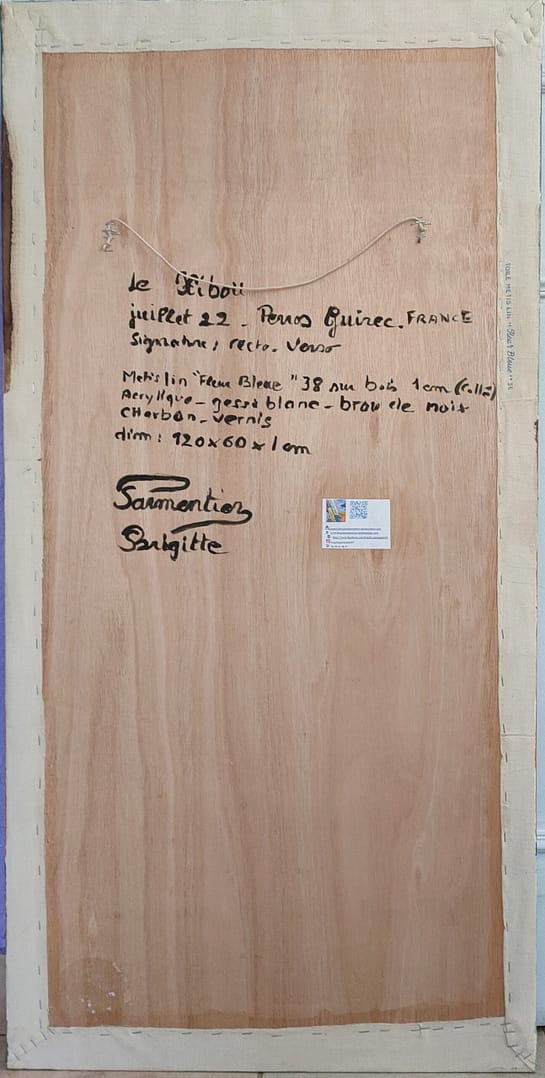 Le Hibou
juillet 22 - Perros Guirec. FRANCE
Signature, recto. Verso
Metis lin "Fleur Bleue" 38 sur bois 1cm (collé)
Acrylique - gesso blanc - brou de noix
CHarbon - vernis
dim : 120 x 60 x 1 cm
Sarmentier
Brigitte
TOILE METIS LIN "Fleur Bleue" 38